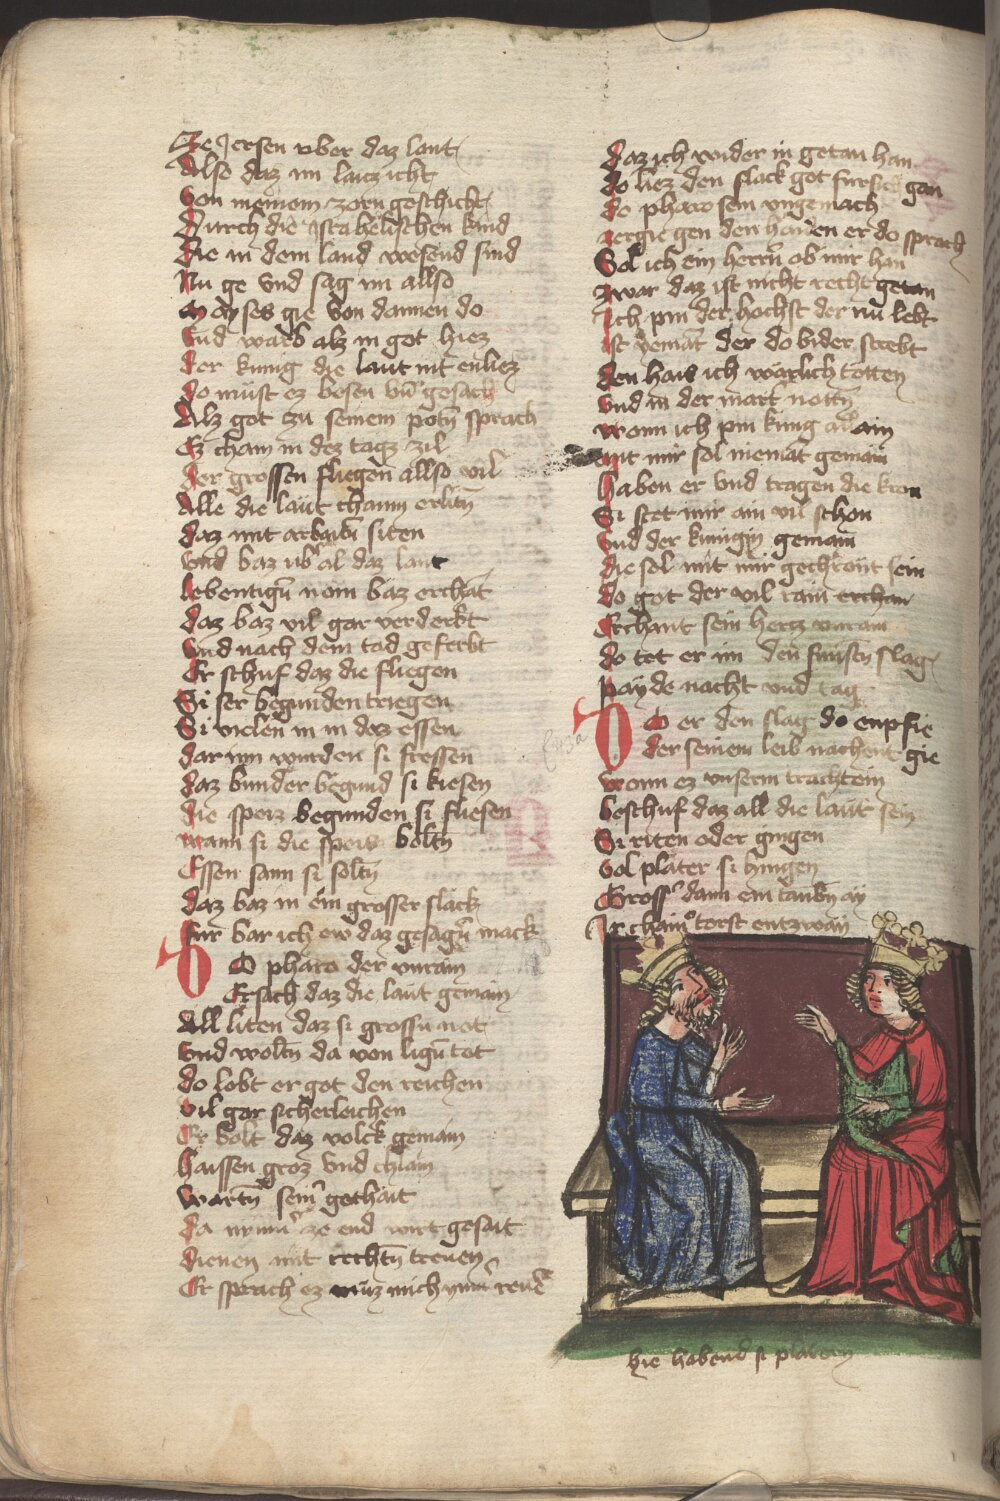 Ze Jersen vber daz lant
Also daz im laicz icht
Von meinem zorn geschicht
Durch die israhelischen kind
Die in dem land wesend sind
Nu ge vnd sag im allso
Moyses gie von dannen do
Vnd warb alz in got hiez
der kunig die laut nit enliez
do müst ez wesen vn̄ geschach
Alz got zu seinem potn̄ sprach
Ez cham in dez tagz zil
der grossen fliegen allso vil
Alle die laüt chaum erlitn̄
daz mit arbaitn̄ siten
vnd waz vb͛ al daz lant
lebentign̄ nom waz erchāt
daz waz vil gar verderbt
vnd nach dem tod geferbt
Er schuf daz die fliegen
Si ser begunden triegen
Si vielen in in daz essen
dar inn wurden si fressen
daz wunder begund si kiesen
die speiz begunden si fliesen
wann si die speis woltn̄
Essen sam si soltn̄
daz waz in ein grosser slack
für war ich ew daz gesagn̄ mack
DO pharo der vnrain
Ersach daz die laüt gemain
All liten daz si grossn̄ not
vnd woltn̄ da von lign̄ tot
do lobt er got den reichen
vil gar sicherleichen
Er wolt daz volck gemain
haissen groz vnd chlain
wartn̄ seinr gothait
da nimm͛ ze end wirt gesait
dienen mit rechtn̄ treuen
Er sprach ez müz mich ymm͛ reuē
daz ich wider in getan han
do liez den slack got fürsich gan
do pharo sein vngemach
vergie gen den haiden er do sprach
Sol ich ein herrn̄ ob mir han
zwar daz ist nicht recht getan
Ich pin der hochst der nu lebt
Ist yemāt der do wider strebt
den hais ich wärlich totten
vnd in der mart notn̄
wann ich pin kung allain
mit mir sol niemāt gemain
haben er vnd tragen die kron
Si stet mir ain vn̄ schon
vnd der kunigin gemain
die sol mit mir gechrönt sein
do got der vil rain erchan
Erchant sein hertz vnrain
do tet er im den funftn̄ slag
payde nacht vnd tag
DO er den slag do enpfie
der seinem leib nachent gie
wann ez vnserm trachtein
beschuf daz all die laüt sein
Si riten oder gingen
vol plater si hingen
Gross͛ dann ein taubn̄ ay
Ir chain͛ torst entzway
hie habend si platern